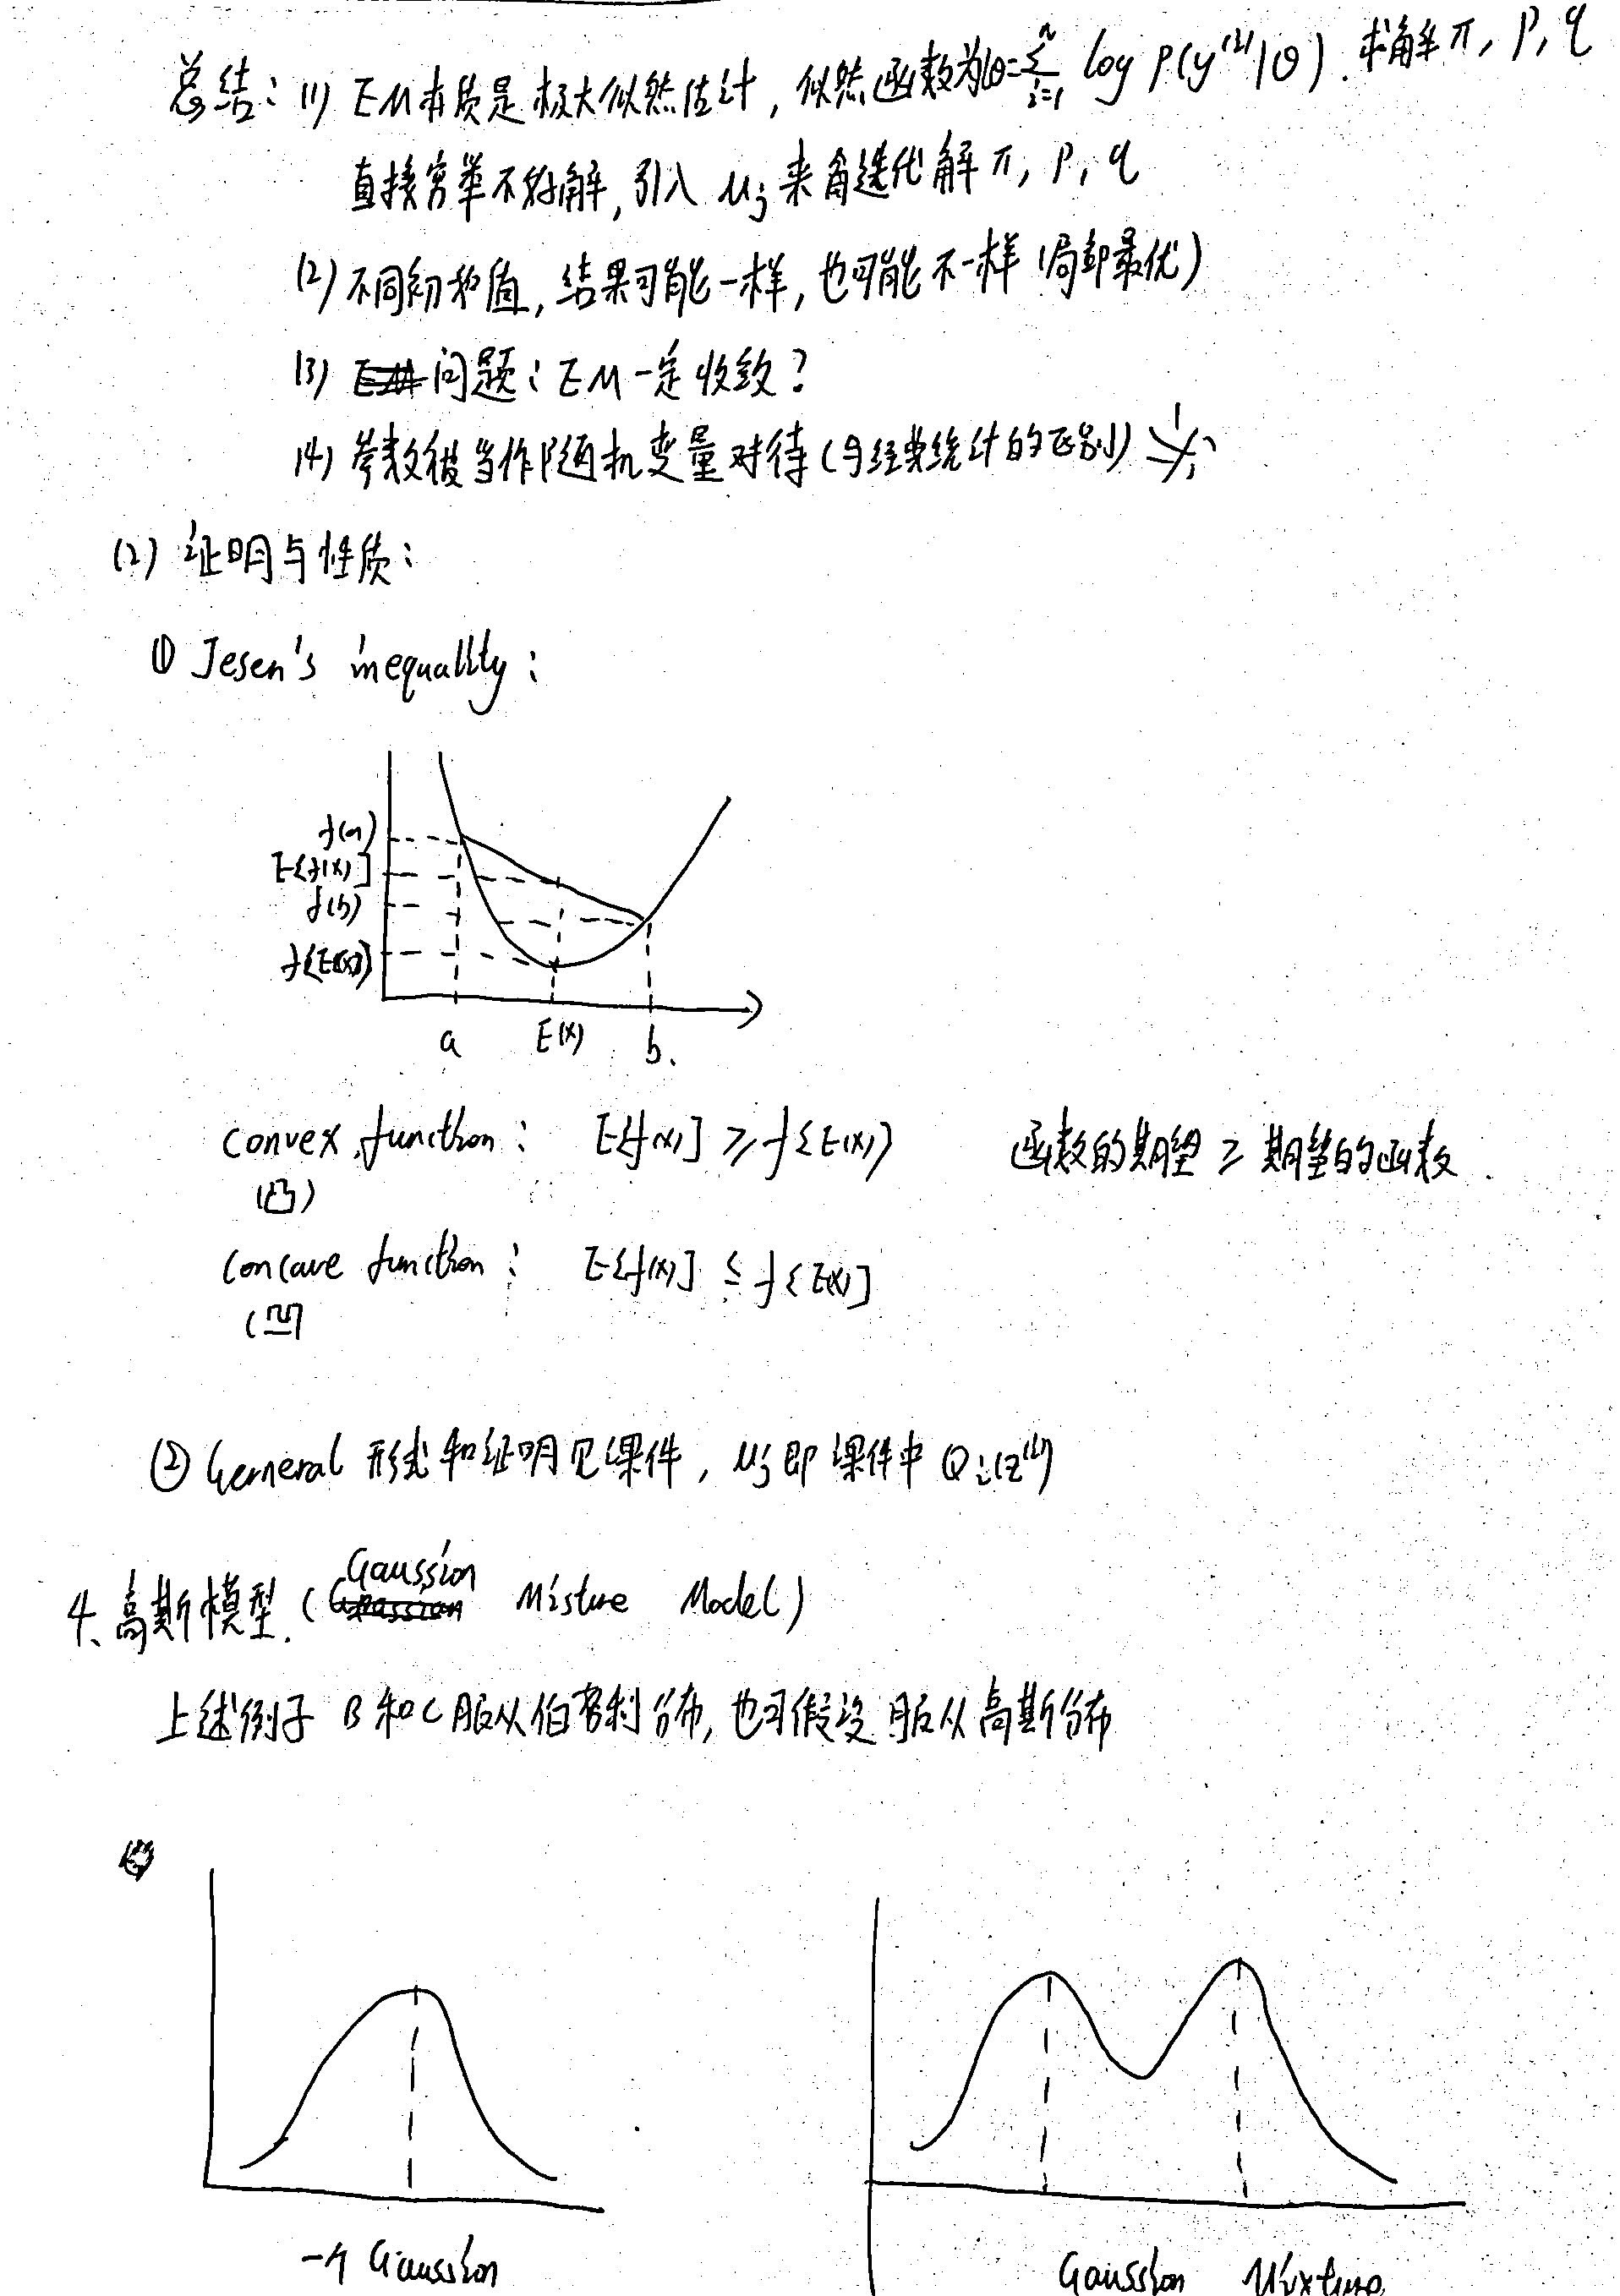 总结：(1) EM本质是极大似然估计，似然函数为l(θ)=∑_{i=1}^{n} log P(y^{(i)}|θ). 求解 π, p, q
直接穷举不好解, 引入 μj 来解 π, p, q
(2) 不同初始值, 结果可能一样, 也可能不一样 (局部最优)
(3) 问题：EM一定收敛？
(4) 参数被当作随机变量对待 (与经典统计的区别)
(2) 证明与性质：
① Jesen's inequality：
f(a)
E[f(x)]
f(b)
f[E(x)]
a E(x) b.
convex function： E[f(x)] ≥ f[E(x)] 函数的期望 ≥ 期望的函数.
(凸)
concave function： E[f(x)] ≤ f[E(x)]
(凹)
② General 形式和证明见课件, μj 即课件中 Qi(z^{(i)})
4、高斯模型. (Gaussion Misture Model)
上述例子 B和C服从伯努利分布, 也可假设服从高斯分布
一个 Gaussion Gaussion Mixture